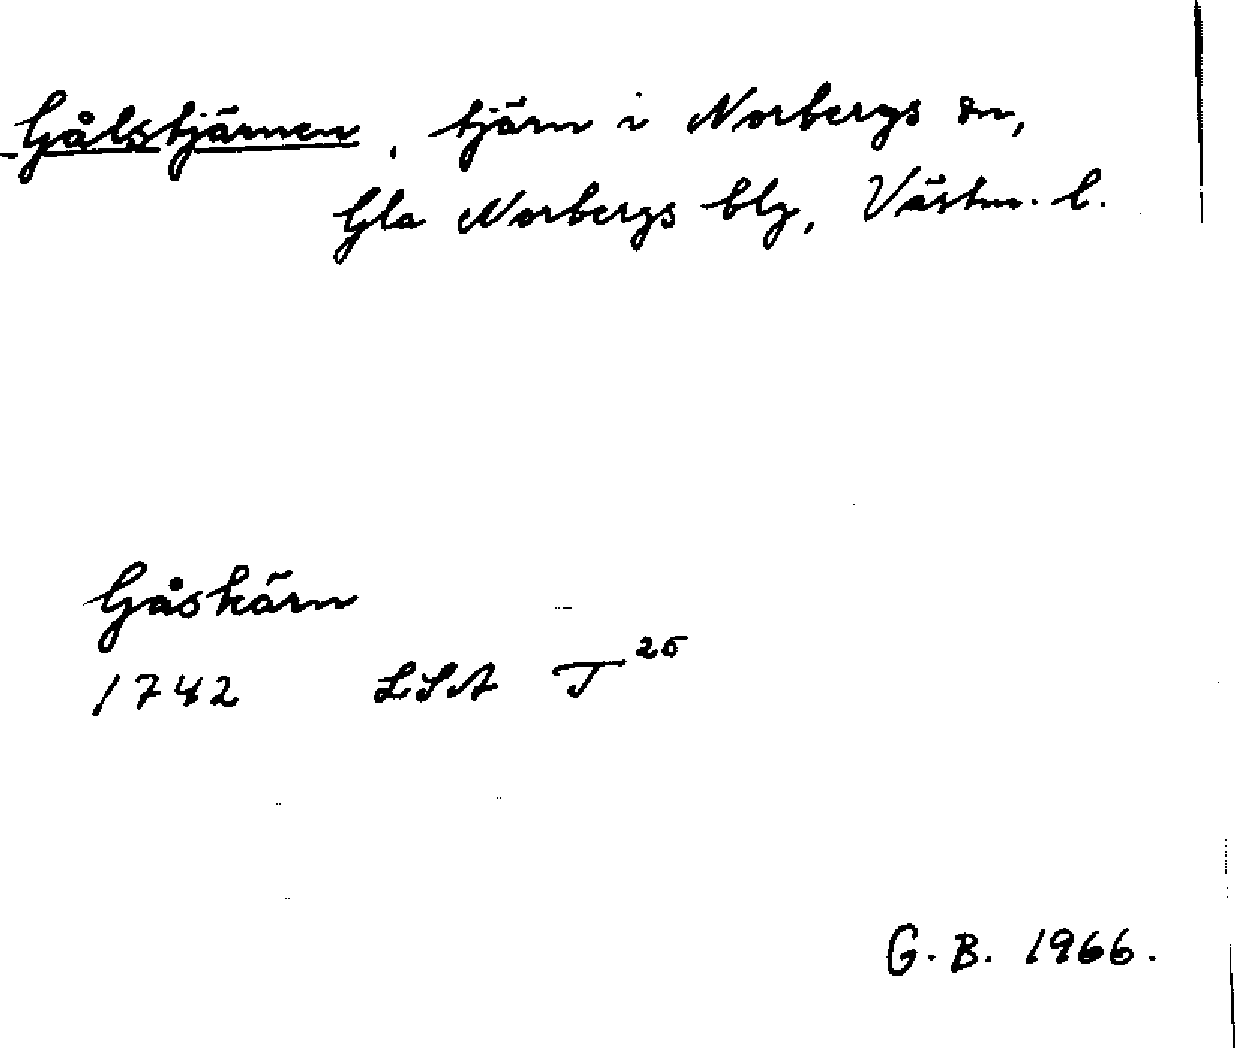 Gålstjärnen, tjärn i Norbergs sn,
Gla Norbergs blg, Västm. l.
Gåskärn
1742 LSA T 25
G. B. 1966.